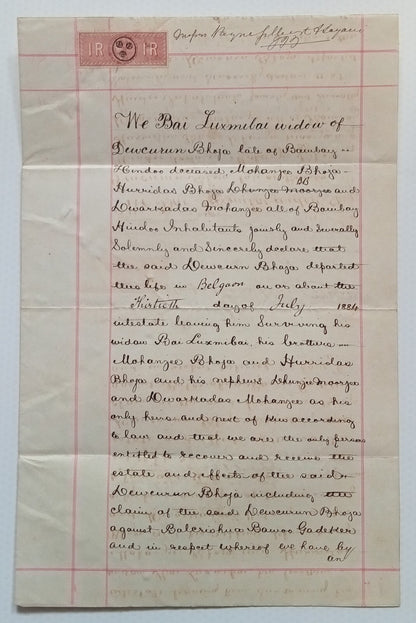 1R 1R
Messrs Payne Gilbert & Sayani
We Bai Luxmibai widow of
Dewcurun Bhoja late of Bombay
Hindoo deceased Mohanjee Bhoja
BB
Hurridas Bhoja Dhunjee Moorjee and
Dwarkadas Mohanjee all of Bombay
Hindoo Inhabitants jointly and severally
Solemnly and Sincerely declare that
the said Dewcurn Bhoja departed
this life in Belgaon on or about the
Thirtieth day of July 1884
intestate leaving him Surviving his
widow Bai Luxmibai, his brothers
Mohanjee Bhoja and Hurridas
Bhoja and his nephews Dhunjee Moorjee
and Dwarkadas Mohanjee as his
only heirs and next of Kin according
to law and that we are the only persons
entitled to recover and receive the
estate and effects of the said
Dewcurun Bhoja including the
claim of the said Dewcurun Bhoja
against Balcrishna Bawoo Gadeker
and in respect whereof we have by
an